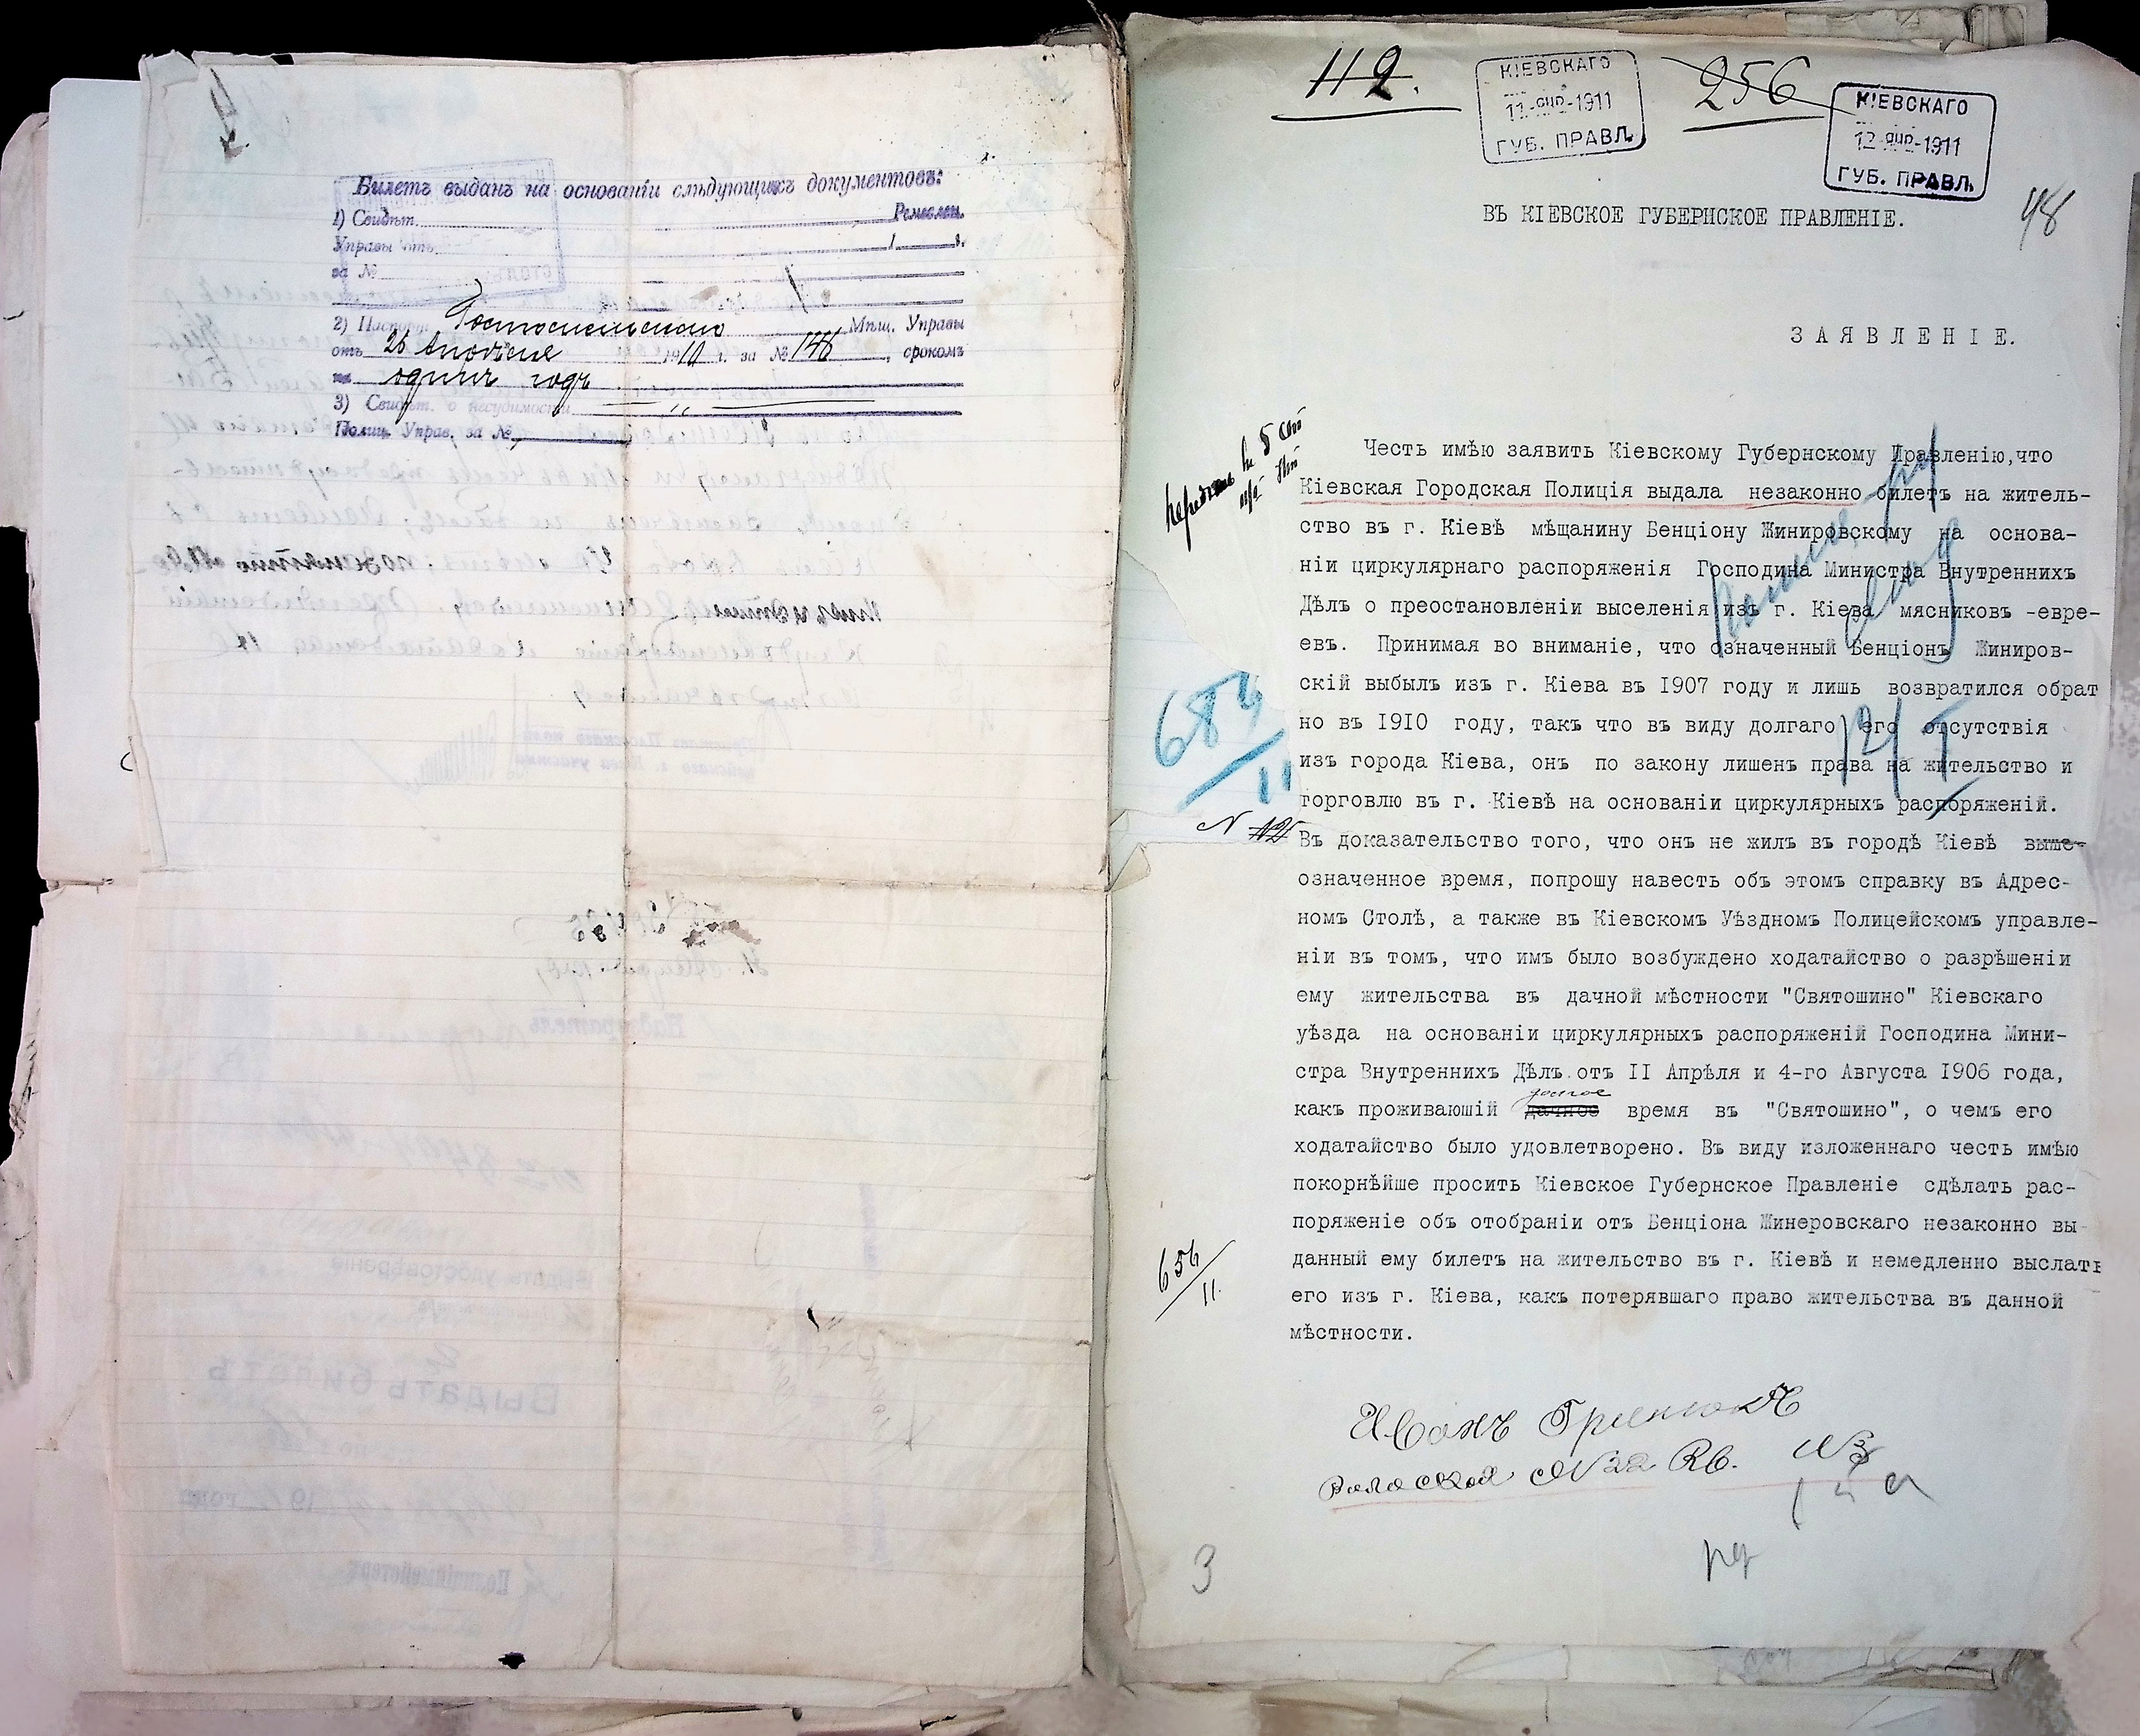 Билетъ выданъ на основаніи слѣдующихъ документовъ:
1) Свидѣт. Ремеслен.
Управы отъ 1 г.
за №
2) Паспорт Мѣщ. Управы
отъ 26 1910 г. за № 146, срокомъ
на одинъ годъ
3) Свидѣт. о несудимости
Полиц. Управ. за №
112.
КІЕВСКАГО
11 ЯНВ 1911
ГУБ. ПРАВЛ.
256
КІЕВСКАГО
12 ЯНВ 1911
ГУБ. ПРАВЛ.
48
ВЪ КІЕВСКОЕ ГУБЕРНСКОЕ ПРАВЛЕНІЕ.
ЗАЯВЛЕНІЕ.
Честь имѣю заявить Кіевскому Губернскому Правленію,что
Кіевская Городская Полиція выдала незаконно билетъ на житель-
ство въ г. Кіевѣ мѣщанину Бенціону Жинировскому на основа-
ніи циркулярнаго распоряженія Господина Министра Внутреннихъ
Дѣлъ о преостановленіи выселенія изъ г. Кіева мясниковъ -евре-
евъ. Принимая во вниманіе, что означенный Бенціонъ Жиниров-
скій выбылъ изъ г. Кіева въ 1907 году и лишь возвратился обрат
но въ 1910 году, такъ что въ виду долгаго его отсутствія
изъ города Кіева, онъ по закону лишенъ права на жительство и
торговлю въ г. Кіевѣ на основаніи циркулярныхъ распоряженій.
Въ доказательство того, что онъ не жилъ въ городѣ Кіевѣ выше-
означенное время, попрошу навесть объ этомъ справку въ Адрес-
номъ Столѣ, а также въ Кіевскомъ Уѣздномъ Полицейскомъ управле-
ніи въ томъ, что имъ было возбуждено ходатайство о разрѣшеніи
ему жительства въ дачной мѣстности "Святошино" Кіевскаго
уѣзда на основаніи циркулярныхъ распоряженій Господина Мини-
стра Внутреннихъ Дѣлъ отъ II Апрѣля и 4-го Августа 1906 года,
какъ проживаюшій дачное время въ "Святошино", о чемъ его
ходатайство было удовлетворено. Въ виду изложеннаго честь имѣю
покорнѣйше просить Кіевское Губернское Правленіе сдѣлать рас-
поряженіе объ отобраніи отъ Бенціона Жинеровскаго незаконно вы-
данный ему билетъ на жительство въ г. Кіевѣ и немедленно выслать
его изъ г. Кіева, какъ потерявшаго право жительства въ данной
мѣстности.
684
11
656
11.
Иванъ Гринюкъ
Волоская № 22 Кв. № 3
3